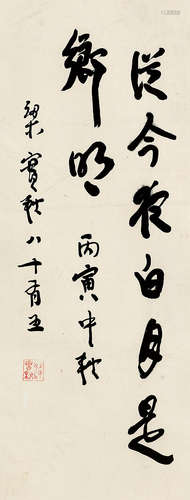 從今夜白月是
鄉明
丙寅中秋
梁實秋八十有五